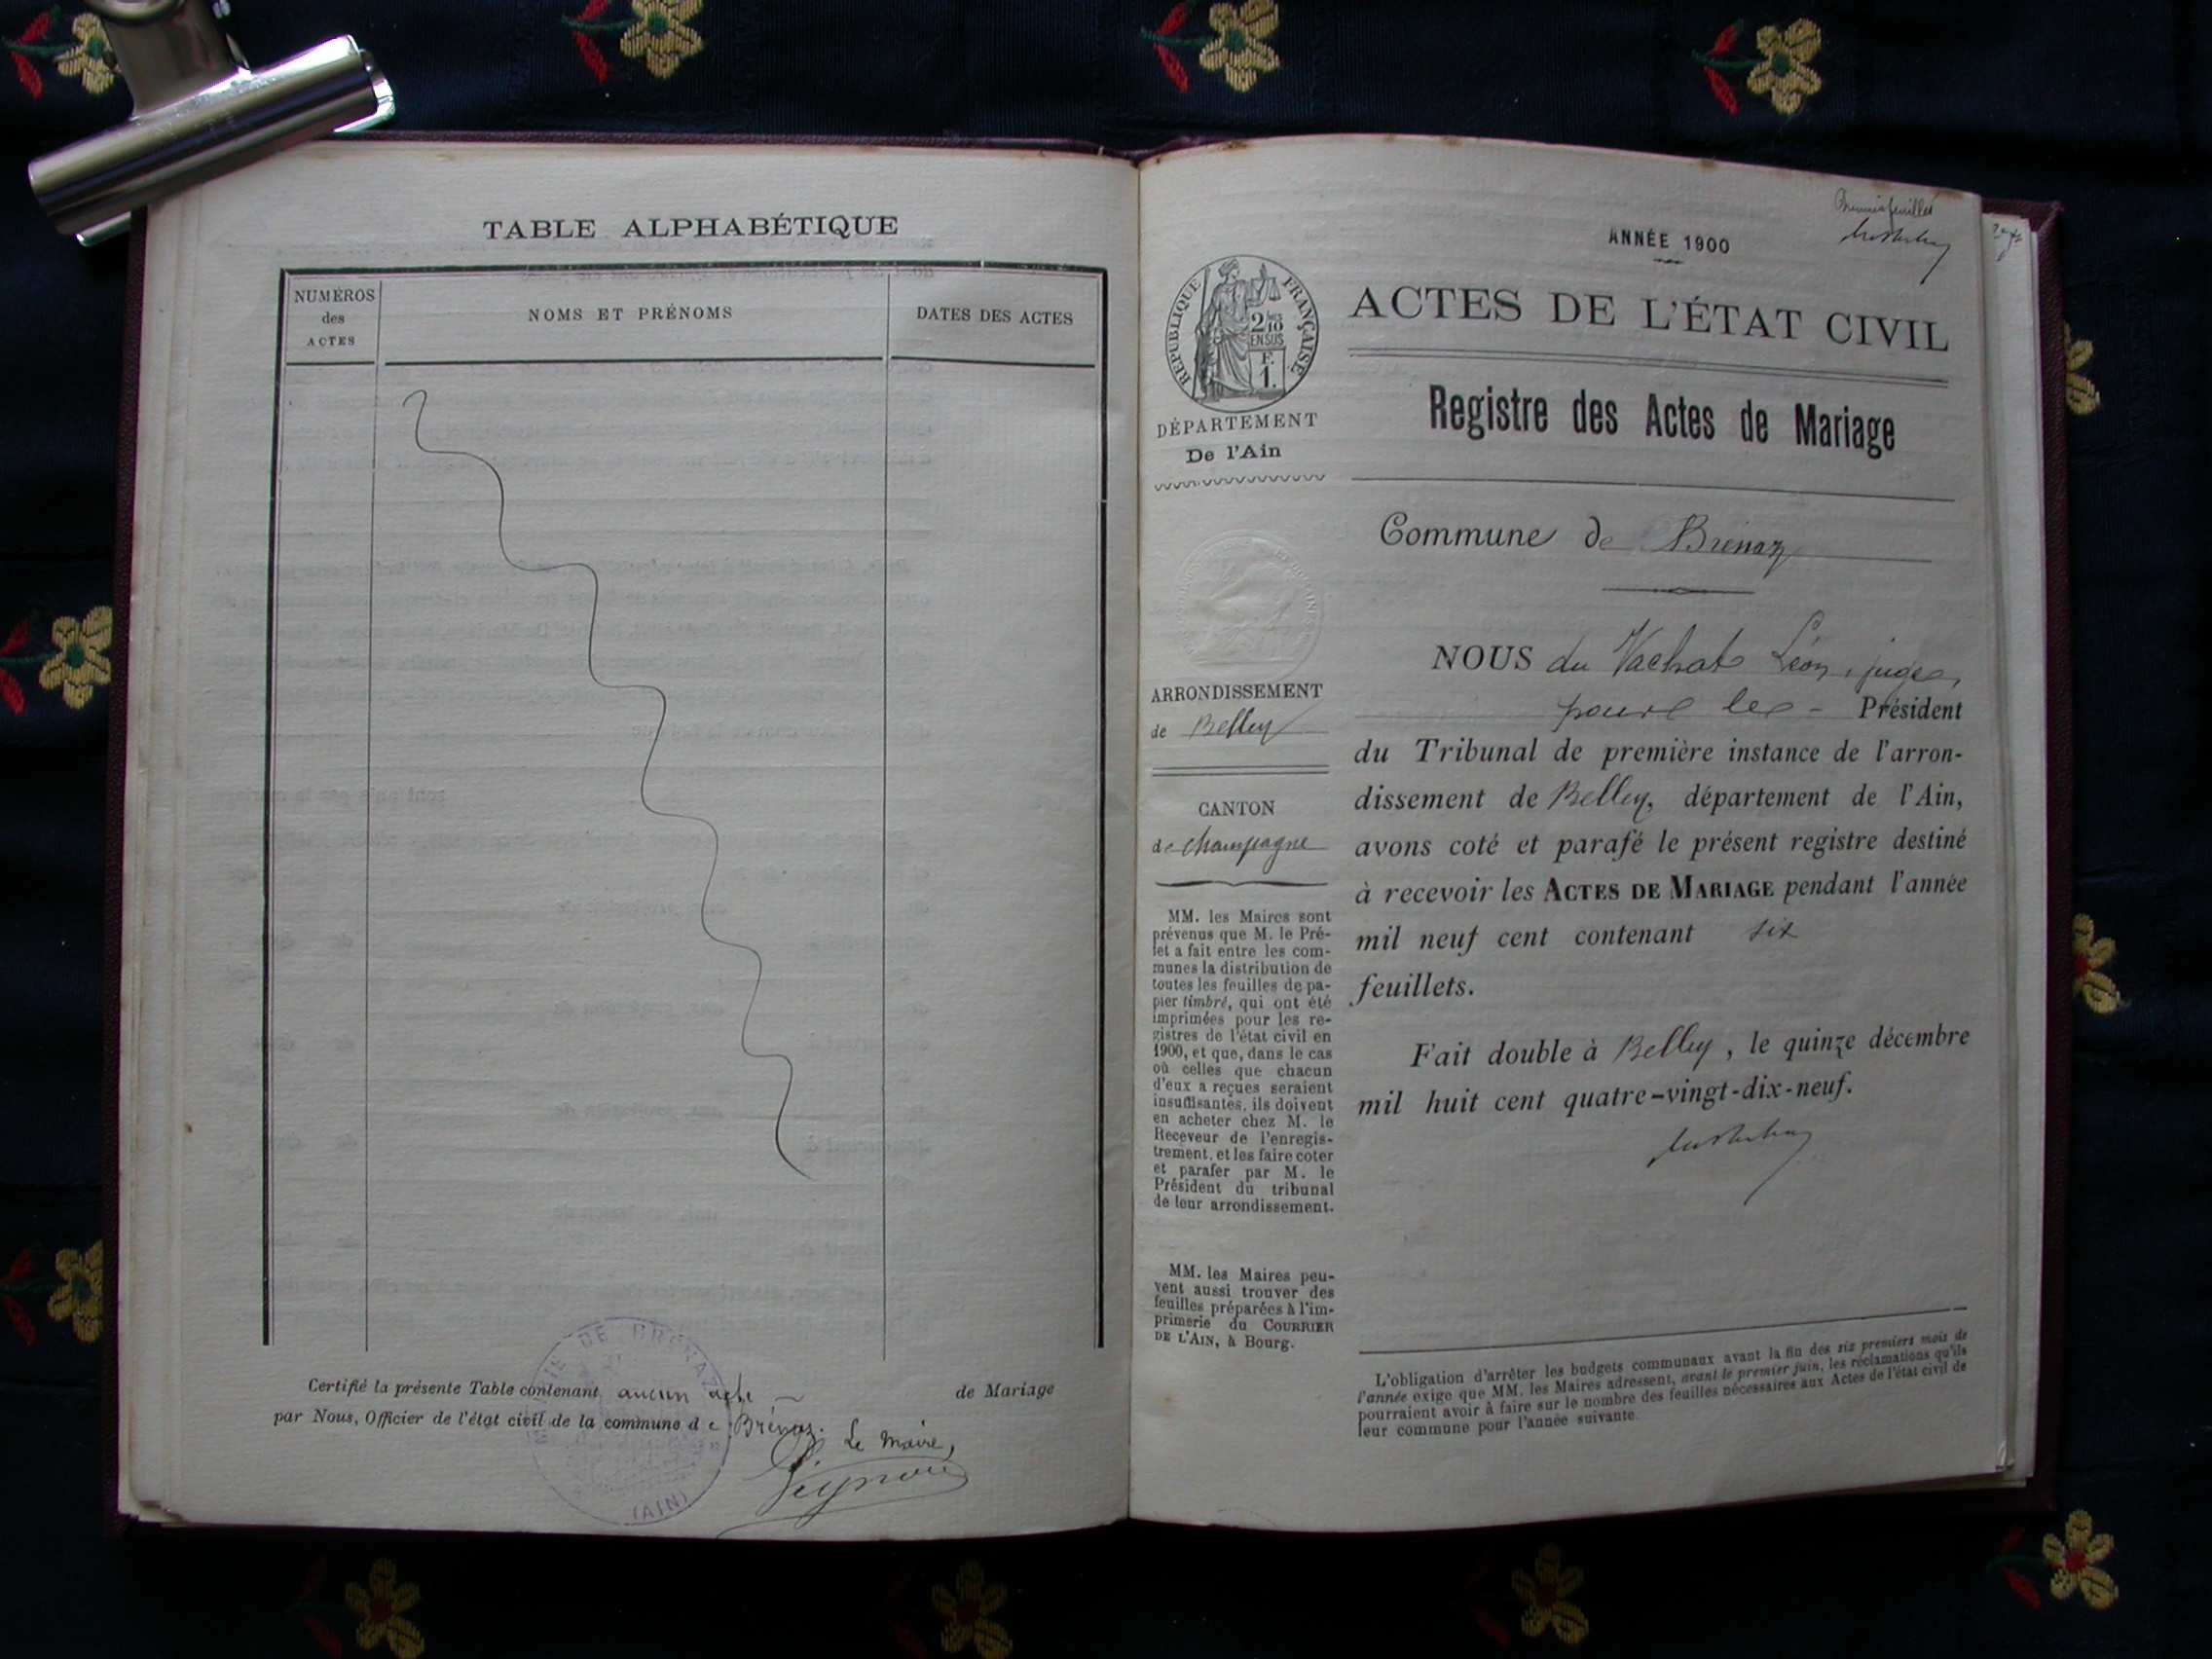 TABLE ALPHABÉTIQUE
NUMÉROS
des
ACTES
NOMS ET PRÉNOMS
DATES DES ACTES
Certifié la présente Table contenant aucun acte de Mariage
par Nous, Officier de l'état civil de la commune de Brénaz. Le Maire,
MAIRIE DE BRÉNAZ
(AIN)
ANNÉE 1900
RÉPUBLIQUE FRANÇAISE
2/10
EN SUS
F.
1.
ACTES DE L'ÉTAT CIVIL
Registre des Actes de Mariage
DÉPARTEMENT
De l'Ain
ARRONDISSEMENT
de Belley
CANTON
de Champagne
MM. les Maires sont
prévenus que M. le Pré-
fet a fait entre les com-
munes la distribution de
toutes les feuilles de pa-
pier timbré, qui ont été
imprimées pour les re-
gistres de l'état civil en
1900, et que, dans le cas
où celles que chacun
d'eux a reçues seraient
insuffisantes, ils doivent
en acheter chez M. le
Receveur de l'enregis-
trement, et les faire coter
et parafer par M. le
Président du tribunal
de leur arrondissement.
MM. les Maires peu-
vent aussi trouver des
feuilles préparées à l'im-
primerie du COURRIER
DE L'AIN, à Bourg.
Commune de Brénaz
NOUS du Vachat Léon, juge,
pour le Président
du Tribunal de première instance de l'arron-
dissement de Belley, département de l'Ain,
avons coté et parafé le présent registre destiné
à recevoir les ACTES DE MARIAGE pendant l'année
mil neuf cent contenant six
feuillets.
Fait double à Belley, le quinze décembre
mil huit cent quatre-vingt-dix-neuf.
L'obligation d'arrêter les budgets communaux avant la fin des six premiers mois de
l'année exige que MM. les Maires adressent, avant le premier juin, les réclamations qu'ils
pourraient avoir à faire sur le nombre des feuilles nécessaires aux Actes de l'état civil de
leur commune pour l'année suivante.